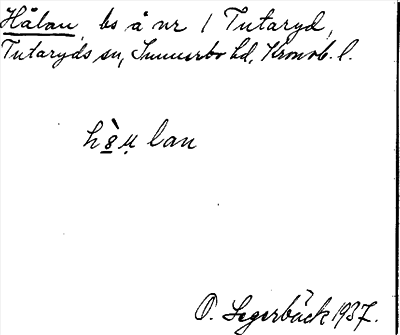 Hålan, bs å nr 1 Tutaryd,
Tutaryds sn, Sunnerbo hd, Kronob. l.
hò̤u̠ lan
O. Segerbäck 1937.